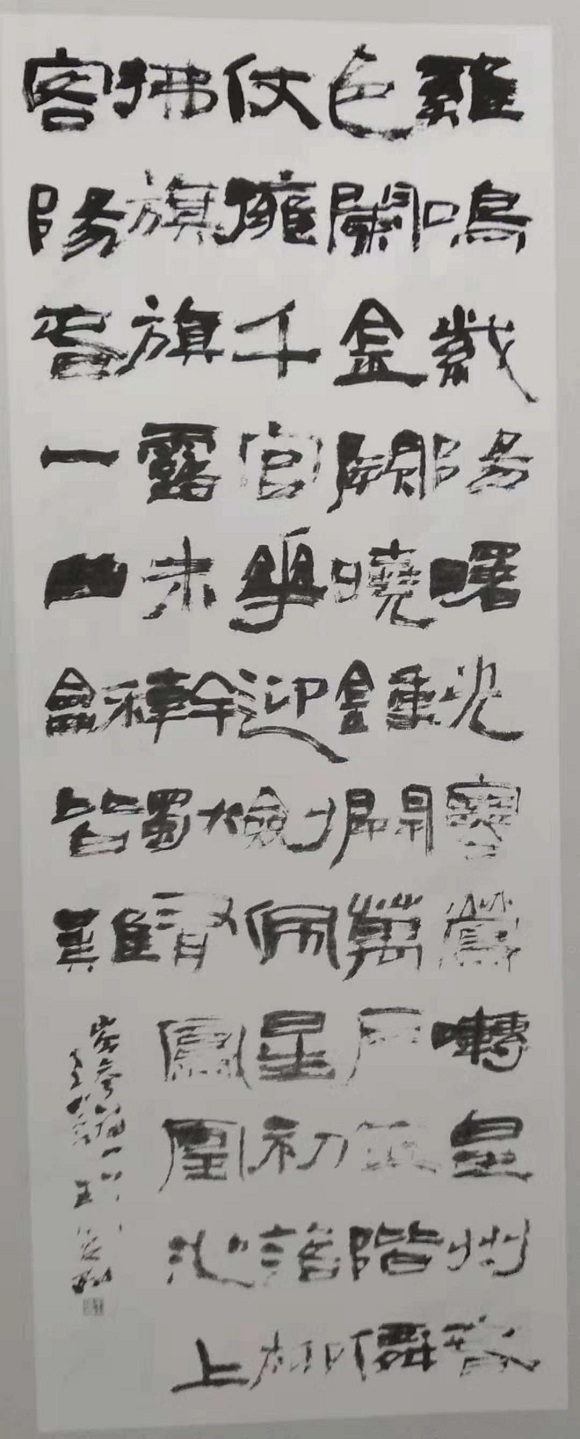 雞鳴紫陌曙光寒鶯囀皇州春
色闌金闕曉鍾開萬戶玉階僊
仗擁千官華迎劍佩星初落柳
拂旗旗露未乾獨有鳳凰池上
客陽春一曲龢皆難
岑參